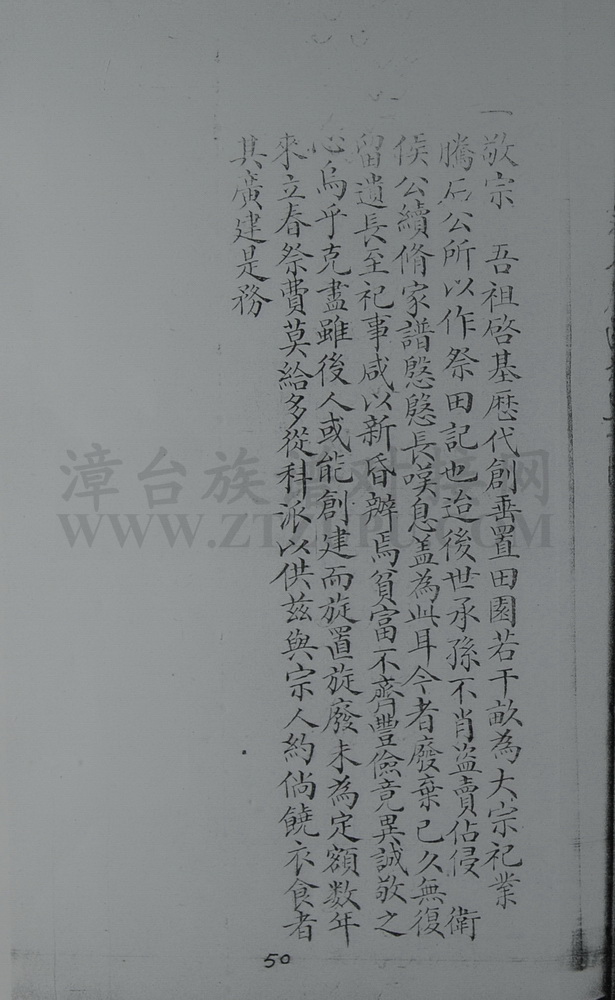 一敬宗 吾祖啓基歷代創垂置田園若干畝為大宗祀業
騰石公所以作祭田記也迨後世承孫不肖盜賣佔侵 衛
侯公續脩家譜慇慇長嘆息蓋為此耳今者廢棄已久無復
留遺長至祀事咸以新昏辦焉貧富不齊豐儉竟異誠敬之
心烏乎克盡雖後人或能創建而旋置旋廢未為定額數年
來立春祭費莫給多從科派以供茲與宗人約倘饒衣食者
其廣建是務
漳台族谱对接网
WWW.ZTZUPU.COM
50